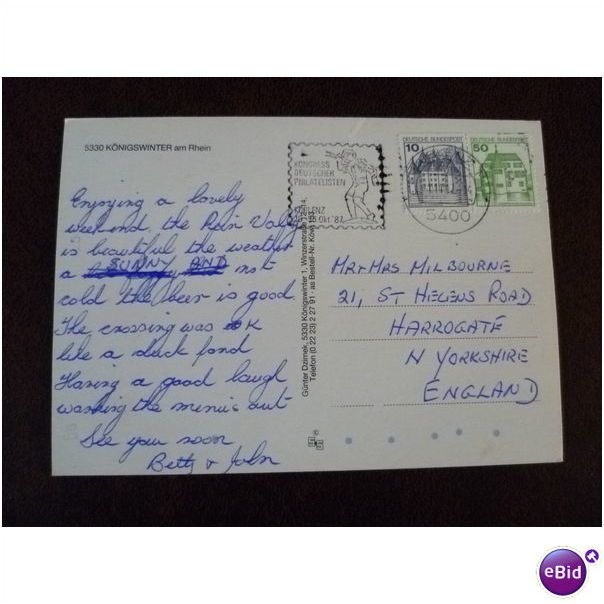 5330 KÖNIGSWINTER am Rhein
KONGRESS
DEUTSCHER
PHILATELISTEN
KOBLENZ
Okt. '87
5400
DEUTSCHE BUNDESPOST
10
DEUTSCHE BUNDESPOST
50
Enjoying a lovely
weekend, the Rein Valey
is beautiful the weather
a SUNNY AND not
cold the beer is good
The crossing was OK
like a duck pond
Having a good laugh
working the menus out
See you soon
Betty + John
Günter Dzimek, 5330 Königswinter 1, Winzerstraße
Telefon (0 22 23) 2 27 91 · as Bestell-Nr. Köwi
MR+MRS MILBOURNE
21, ST HELENS ROAD
HARROGATE
N YORKSHIRE
ENGLAND
eBid